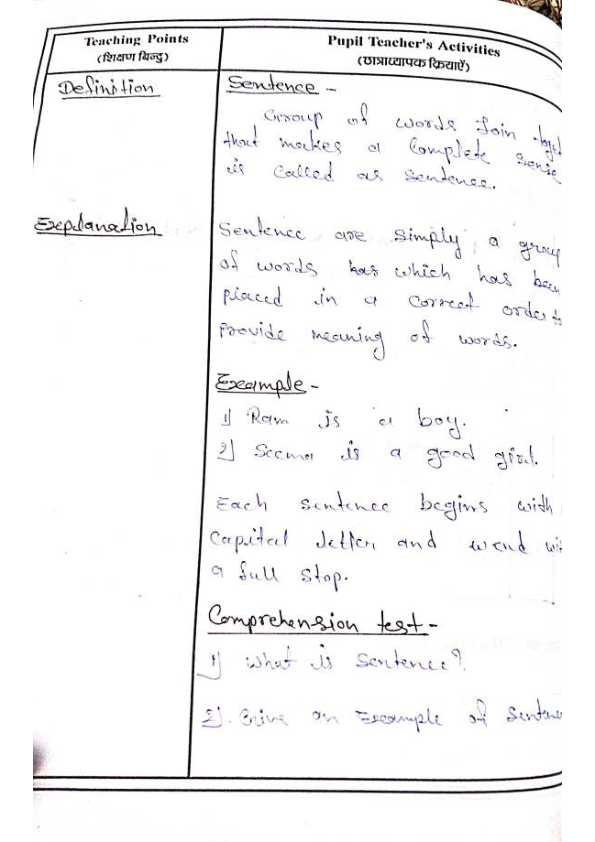 Teaching Points
(शिक्षण बिन्दु)
Pupil Teacher's Activities
(छात्राध्यापक क्रियाऐं)
Definition
Sentence -
Group of words Join toget
that makes a Complete Sense
is called as sentence.
Explanation
Sentence are simply a group
of words has which has been
placed in a correct order to
Provide meaning of words.
Example -
1) Ram is a boy.
2) Seema is a good girl.
Each sentence begins with
Capital letter and wend wit
a full stop.
Comprehension test -
1) What is sentence?
2). Give an Example of Sentence